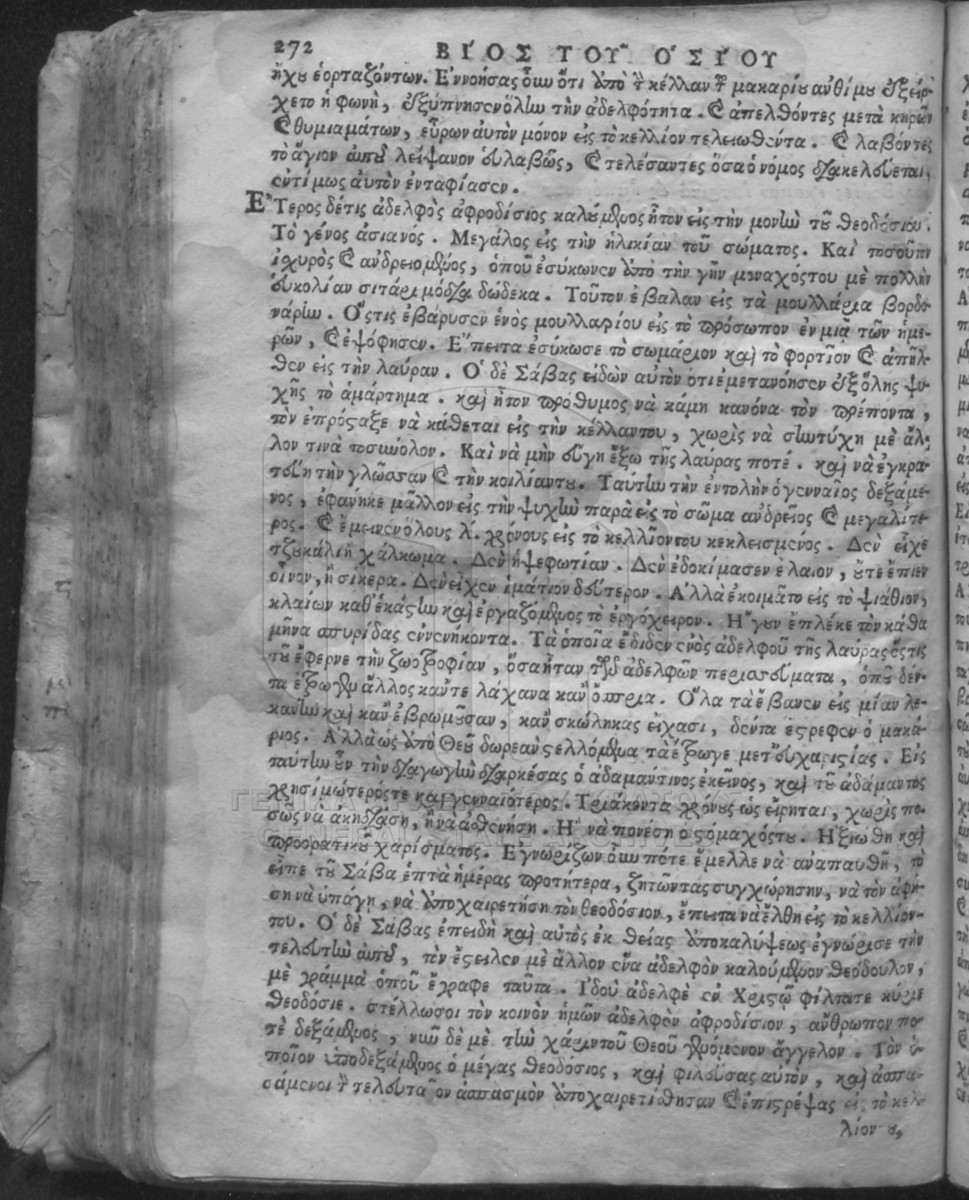 272 ΒΊΟΣ ΤΟΥ͂ Ὁ ΣΊΟΥ
ἤχου ἑορταζόντων. Ἐννοήσας οὖν ὅτι ἀπὸ τὴν κέλλαν τοῦ μακαρίου ἀνθίμου ἐξείρ-
χετο ἡ φωνὴ, ἐξύπνησεν ὅλην τὴν ἀδελφότητα. καὶ ἀπελθόντες μετὰ κηρῶν
καὶ θυμιαμάτων, εὗρων αὐτὸν μόνον εἰς τὸ κελλίον τελειωθέντα. καὶ λαβόντες
τὸ ἅγιον αὐτοῦ λείψανον εὐλαβῶς, καὶ τελέσαντες ὅσα ὁ νόμος διακελεύεται,
ἐντίμως αὐτὸν ἐνταφίασεν.
Ἕτερος δέ τις ἀδελφὸς ἀφροδίσιος καλούμενος ἦτον εἰς τὴν μονὴν τοῦ θεοδόσιου.
Τὸ γένος ἀσιανός. Μεγάλος εἰς τὴν ἡλικίαν τοῦ σώματος. Καὶ τοσοῦτον
ἰσχυρὸς καὶ ἀνδρειομένος, ὁποῦ ἐσύκωνεν ἀπὸ τὴν γῆν μοναχόςτου μὲ πολλὴν
εὐκολίαν σιτάρι μόδια δώδεκα. Τοῦτον ἔβαλαν εἰς τὰ μουλλάρια βορδο-
νάριν. Ὅςτις ἐβάρυσεν ἑνὸς μουλλαρίου εἰς τὸ πρόσωπον ἐν μιᾷ τῶν ἡμε-
ρῶν, καὶ ἐψόφησεν. Ἔπειτα ἐσύκωσε τὸ σωμάριον καὶ τὸ φορτίον καὶ ἀπῆλ-
θεν εἰς τὴν λαύραν. Ὁ δὲ Σάβας εἰδὼν αὐτὸν ὅτι ἐμετανόησεν ἐξ ὅλης ψυ-
χῆς τὸ ἁμάρτημα. καὶ ἦτον πρόθυμος νὰ κάμη κανόνα τὸν πρέποντα,
τὸν ἐπρόςαξε νὰ κάθεται εἰς τὴν κέλλαντου, χωρὶς νὰ συντύχη μὲ ἄλ-
λον τινὰ τοσύνολον. Καὶ νὰ μὴν εὔγη ἔξω τῆς λαύρας ποτέ. καὶ νὰ ἐγκρα-
τεύη τὴν γλῶσσαν καὶ τὴν κοιλίαντου. Ταύτην τὴν ἐντολὴν ὁ γενναῖος δεξάμε-
νος, ἐφάνηκε μᾶλλον εἰς τὴν ψυχὴν παρὰ εἰς τὸ σῶμα ἀνδρεῖος καὶ μεγαλίτε-
ρος. καὶ ἔμεινεν ὅλους λ΄. χρόνους εἰς τὸ κελλίοντου κεκλεισμένος. Δεν εἶχε
τζουκάλι ἢ χάλκωμα. Δεν ἤψε φωτίαν. Δεν ἐδοκίμασεν ἔλαιον, οὔτε ἔπιεν
οἶνον, ἢ σίκερα. Δεν εἶχεν ἱμάτιον δεύτερον. Ἀλλὰ ἐκοιμᾶτο εἰς τὸ ψιάθιον,
κλαίων καθ' ἑκάςην καὶ ἐργαζόμενος τὸ ἐργόχειρον. Ἤγουν ἔπλεκε τὸν κάθα
μῆνα σπυρίδας ἐννενήκοντα. Τὰ ὁποῖα ἔδιδεν ἑνὸς ἀδελφοῦ τῆς λαύρας ὅςτις
τοῦ ἔφερνε τὴν ζωοτροφίαν, ὅσα ἦταν τῶν ἀδελφῶν περισσεύματα, ὁποῦ δέν-
τα ἔτρωγεν ἄλλος καν τε λάχανα καν ὄσπρια. Ὅλα τὰ ἔβανεν εἰς μίαν λε-
κάνην καὶ καν ἐβρωμοῦσαν, καν σκώληκας εἴχασι, δεντα ἔςρεφεν ὁ μακά-
ριος. Ἀλλὰ ὡς ἀπὸ Θεοῦ δωρεὰν ςελλόμενα τὰ ἔτρωγε μετ' εὐχαριςίας. Εἰς
ταύτην οὖν τὴν διαγωγὴν διαρκέσας ὁ ἀδαμάντινος ἐκεῖνος, καὶ τοῦ ἀδάμαντος
χρησιμώτερός τε καὶ γενναιότερος. Τριάκοντα χρόνους ὡς εἴρηται, χωρὶς πο-
σῶς νὰ ἀκηδιάση, ἢ νὰ ἀσθενήση. Ἢ νὰ πονέση ὁ ςομαχόςτου. Ἠξιώθη καὶ
προορατικοῦ χαρίσματος. Ἐγνωρίζων οὖν ποτε ἔμελλε νὰ ἀναπαυθῆ, τὸ
εἶπε τοῦ Σάβα ἑπτὰ ἡμέρας προτήτερα, ζητῶντας συγχώρησην, νὰ τὸν ἀφή-
ση νὰ ὑπάγη, νὰ ἀποχαιρετήση τὸν θεοδόσιον, ἔπειτα νὰ ἔλθη εἰς τὸ κελλίον-
του. Ὁ δὲ Σάβας ἐπειδὴ καὶ αὐτὸς ἐκ θείας ἀποκαλύψεως ἐγνώρισε τὴν
τελευτὴν αὐτοῦ, τὸν ἔςειλεν μὲ ἄλλον ἕνα ἀδελφὸν καλούμενον θεόδουλον,
μὲ γράμμα ὁποῦ ἔγραφε ταῦτα. Ἰδοὺ ἀδελφὲ ἐν Χριςῷ φίλτατε κύριε
θεοδόσιε. στέλλωσοι τὸν κοινὸν ἡμῶν ἀδελφὸν ἀφροδίσιον, ἄνθρωπον πο-
τὲ δεξάμενος, νῦν δὲ μὲ τὴν χάριν τοῦ Θεοῦ γενόμενον ἄγγελον. Τὸν ὁ-
ποῖον ὑποδεξάμενος ὁ μέγας θεοδόσιος, καὶ φιλεύσας αὐτὸν, καὶ ἀσπα-
σάμενοι τὸν τελευταῖον ἀσπασμὸν ἀποχαιρετίθησαν καὶ ἐπιςρέψας εἰς τὸ κελ-
λίον
ΓΕΝΙΚΑ ΑΡΧΕΙΑ ΤΟΥ ΚΡΑΤΟΥΣ
GENERAL STATE ARCHIVES